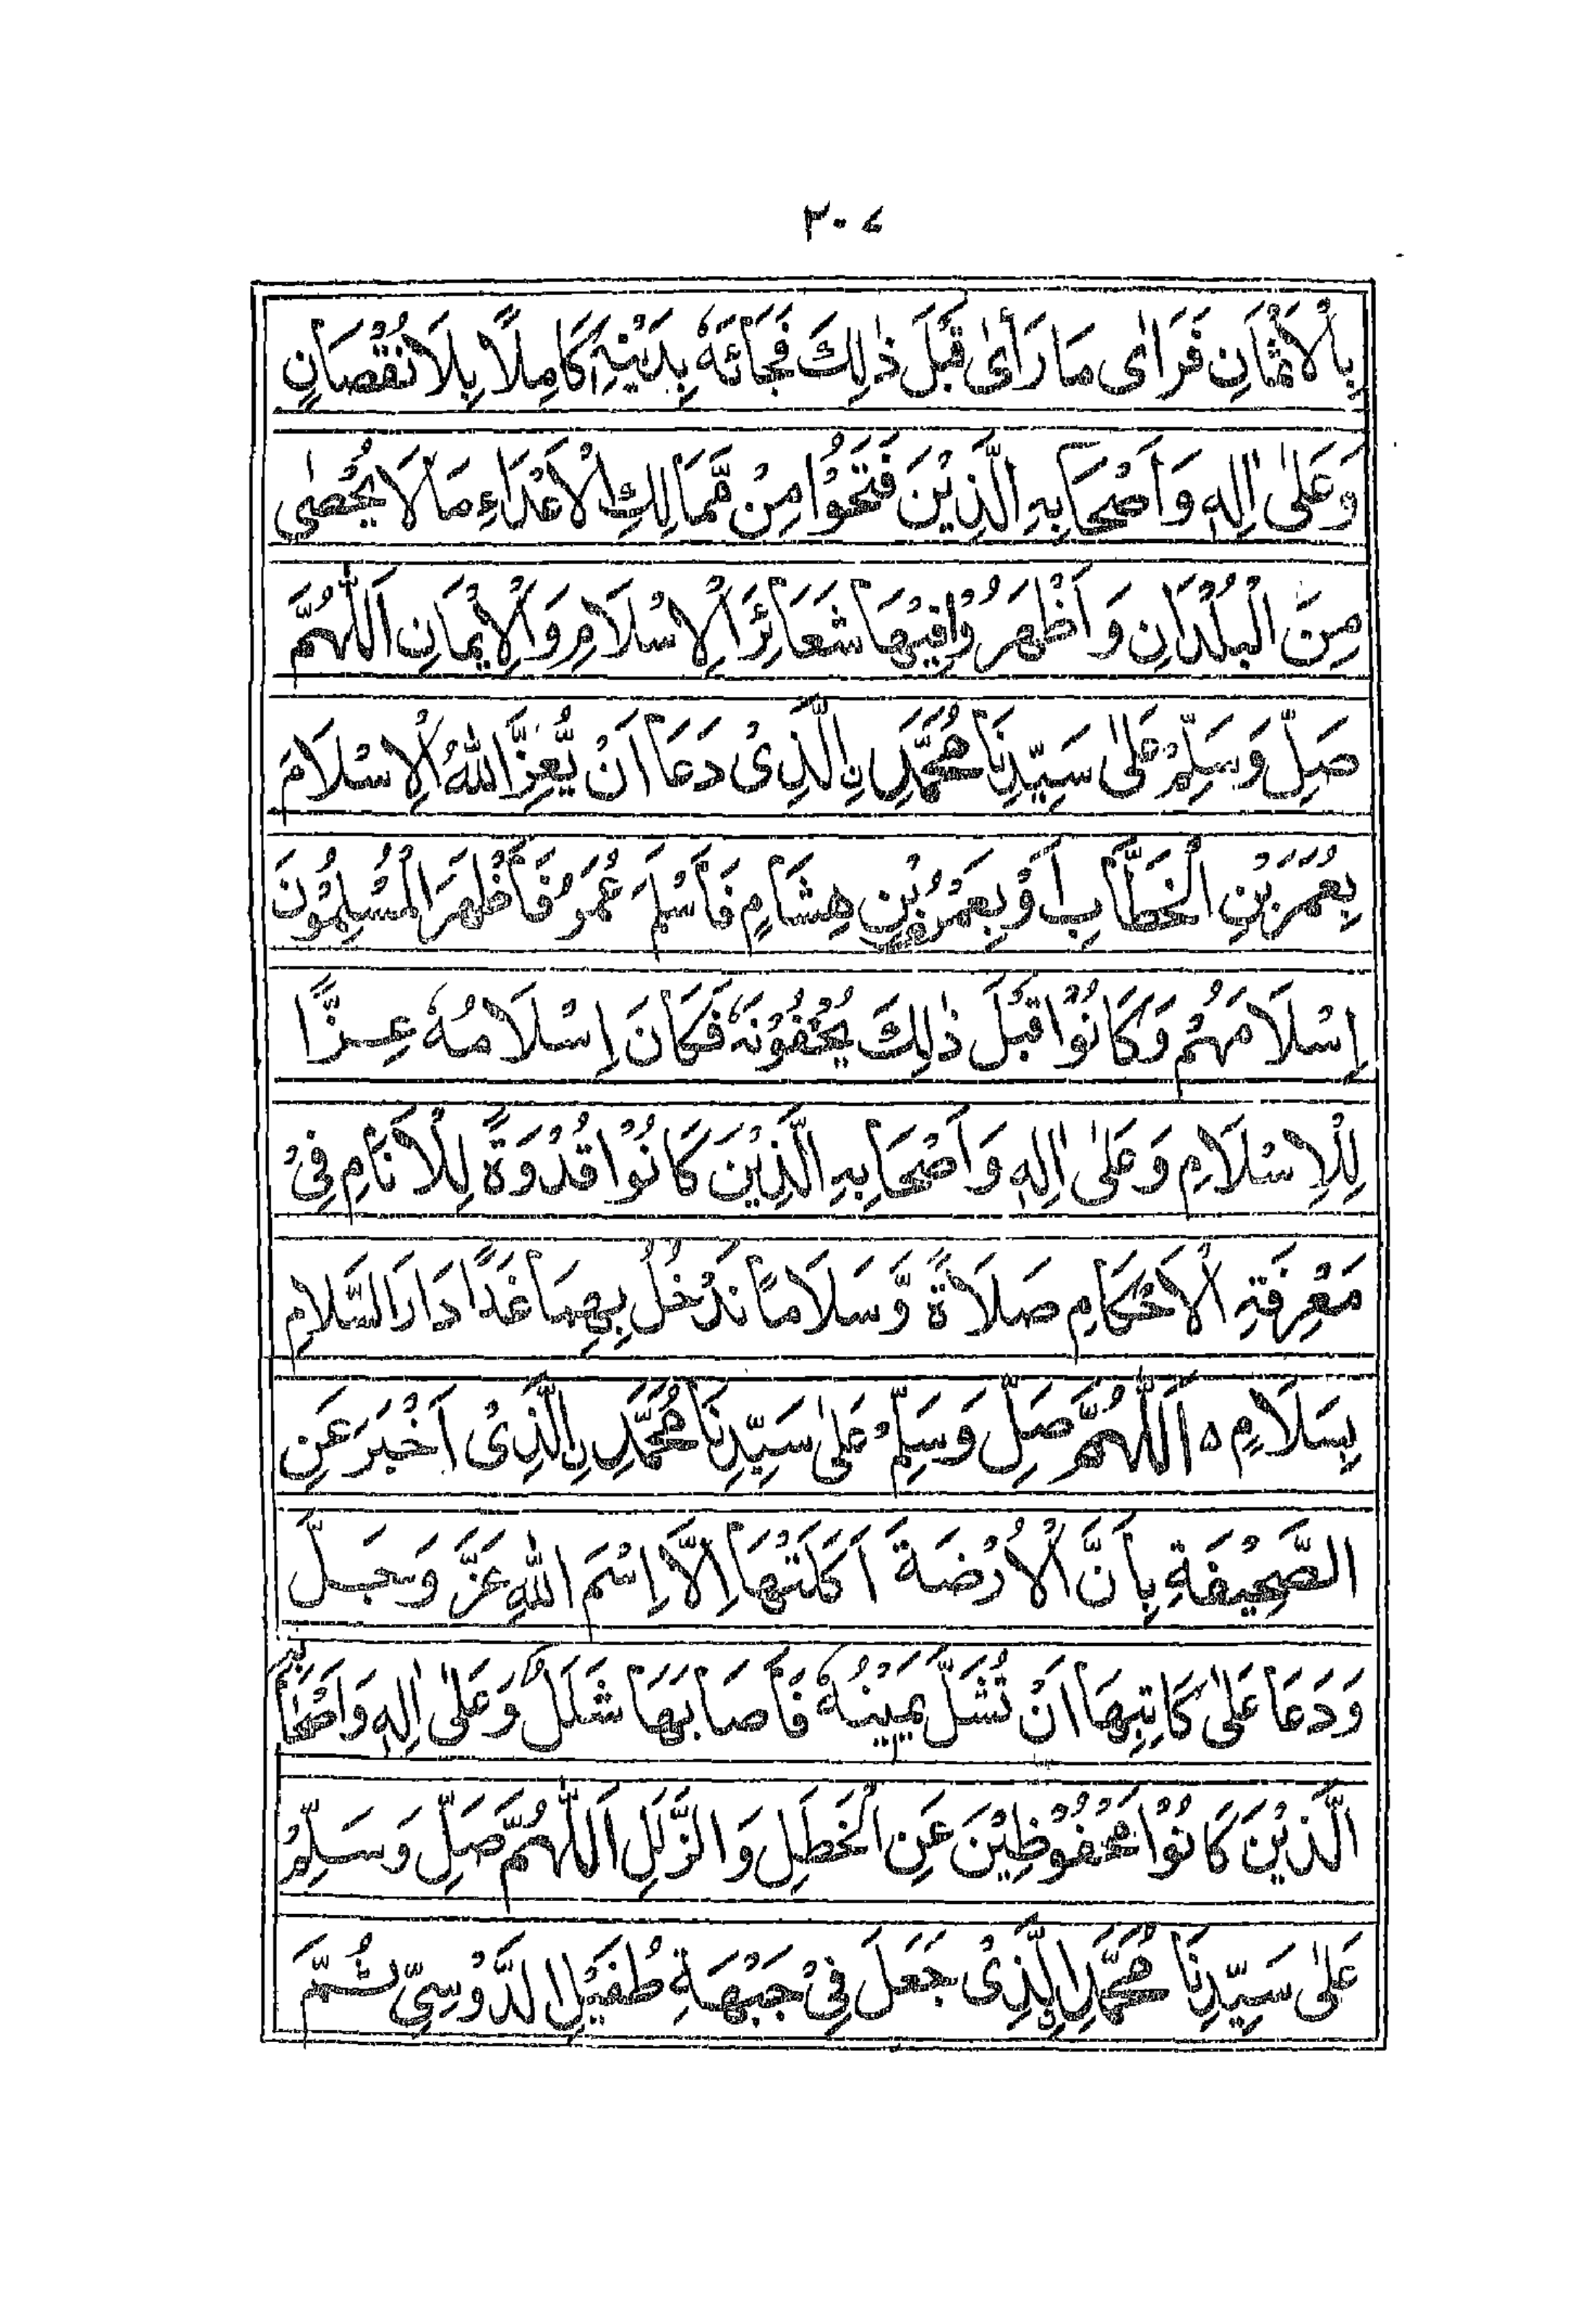 ٢٠٤
بِالْاَثْمَانِ فَرَاٰى مَا رَاٰى قَبْلَ ذٰلِكَ فَجَائَهٗ بِدَيْنِهٖ كَامِلًا بِلَا نُقْصَانٍ
وَعَلٰى اٰلِهٖ وَاَصْحَابِهِ الَّذِيْنَ فَتَحُوْا مِنْ مَّمَالِكِ الْاَعْدَاءِ مَا لَا يُحْصٰى
مِنَ الْبُلْدَانِ وَاَظْهَرُوْا فِيْهَا شَعَائِرَ الْاِسْلَامِ وَالْاِيْمَانِ اَللّٰهُمَّ
صَلِّ وَسَلِّمْ عَلٰى سَيِّدِنَا مُحَمَّدِ نِ الَّذِىْ دَعَا اَنْ يُّعِزَّ اللّٰهُ الْاِسْلَامَ
بِعُمَرَ بْنِ الْخَطَّابِ اَوْ بِعَمْرِو بْنِ هِشَامٍ فَاَسْلَمَ عُمَرُ فَاَظْهَرَ الْمُسْلِمُوْنَ
اِسْلَامَهُمْ وَكَانُوْا قَبْلَ ذٰلِكَ يُخْفُوْنَهٗ فَكَانَ اِسْلَامُهٗ عِزًّا
لِلْاِسْلَامِ وَعَلٰى اٰلِهٖ وَاَصْحَابِهِ الَّذِيْنَ كَانُوْا قُدْوَةً لِلْاَنَامِ فِىْ
مَعْرِفَةِ الْاَحْكَامِ صَلَاةً وَّسَلَامًا نَدْخُلُ بِهِمَا غَدًا دَارَ السَّلَامِ
بِسَلَامٍ ٥ اَللّٰهُمَّ صَلِّ وَسَلِّمْ عَلٰى سَيِّدِنَا مُحَمَّدِ نِ الَّذِىْ اَخْبَرَ عَنِ
الصَّحِيْفَةِ بِاَنَّ الْاَرْضَةَ اَكَلَتْهَا اِلَّا اِسْمَ اللّٰهِ عَزَّ وَجَلَّ
وَدَعَا عَلٰى كَاتِبِهَا اَنْ تُشَلَّ يَمِيْنُهٗ فَاَصَابَهَا شَلَلٌ وَعَلٰى اٰلِهٖ وَاَصْحَابِهِ
الَّذِيْنَ كَانُوْا مَحْفُوْظِيْنَ عَنِ الْخَطَلِ وَالزَّلَلِ اَللّٰهُمَّ صَلِّ وَسَلِّمْ
عَلٰى سَيِّدِنَا مُحَمَّدِ نِ الَّذِىْ جَعَلَ فِىْ جَبْهَةِ طُفَيْلِ الدَّوْسِىِّ ثُمَّ